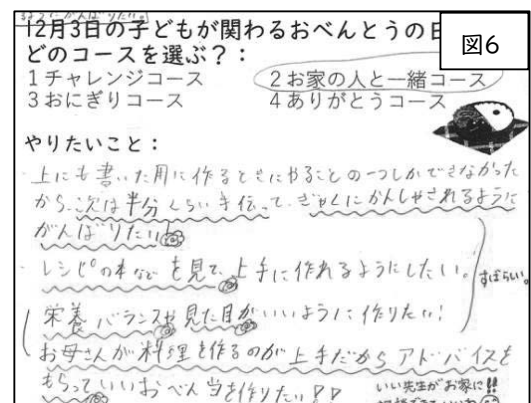 るようにがんばりたい。
12月3日の子どもが関わるおべんとうの日
図6
どのコースを選ぶ？：
1チャレンジコース
2お家の人と一緒コース
3おにぎりコース
4ありがとうコース
やりたいこと：
・上にも書いた用に作るときにやることの一つしかできなかった
から、次は半分くらい手伝って、ぎゃくにかんしゃされるように
がんばりたい!
・レシピの本など を見て、上手に作れるようにしたい。
すばらしい。
栄養バランスや見た目がいいように作りたい!
お母さんが料理を作るのが上手だからアドバイスを
もらっていいおべん当を作りたい!!
いい先生がお家に!!